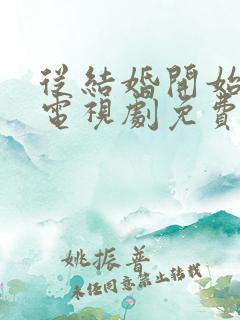 從結婚開始
電視劇免費
姚振普
未任同意禁止轉載